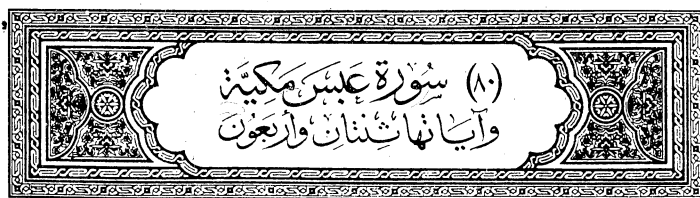 (٨٠) سُورَة عَبَسَ مَكِيَّة
وَآيَاتُهَا ثِنْتَانِ وَأَرْبَعُونَ